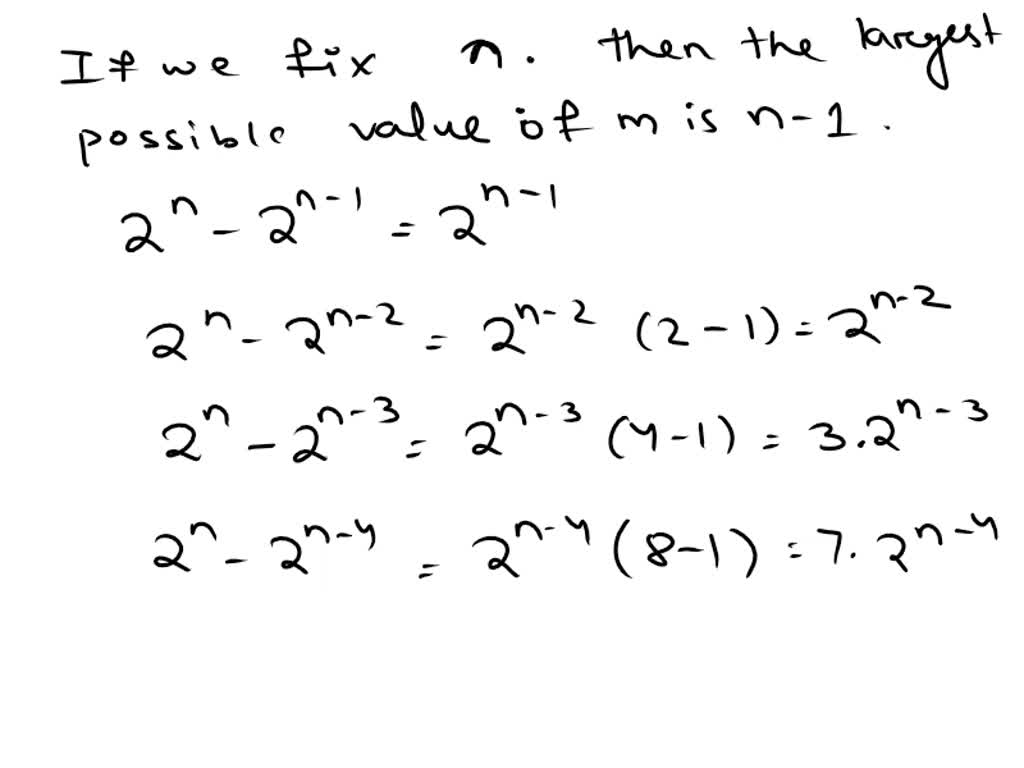 If we fix n. then the largest
possible value of m is n-1.
2^n - 2^{n-1} = 2^{n-1}
2^n - 2^{n-2} = 2^{n-2} (2-1) = 2^{n-2}
2^n - 2^{n-3} = 2^{n-3} (4-1) = 3.2^{n-3}
2^n - 2^{n-4} = 2^{n-4} (8-1) = 7.2^{n-4}